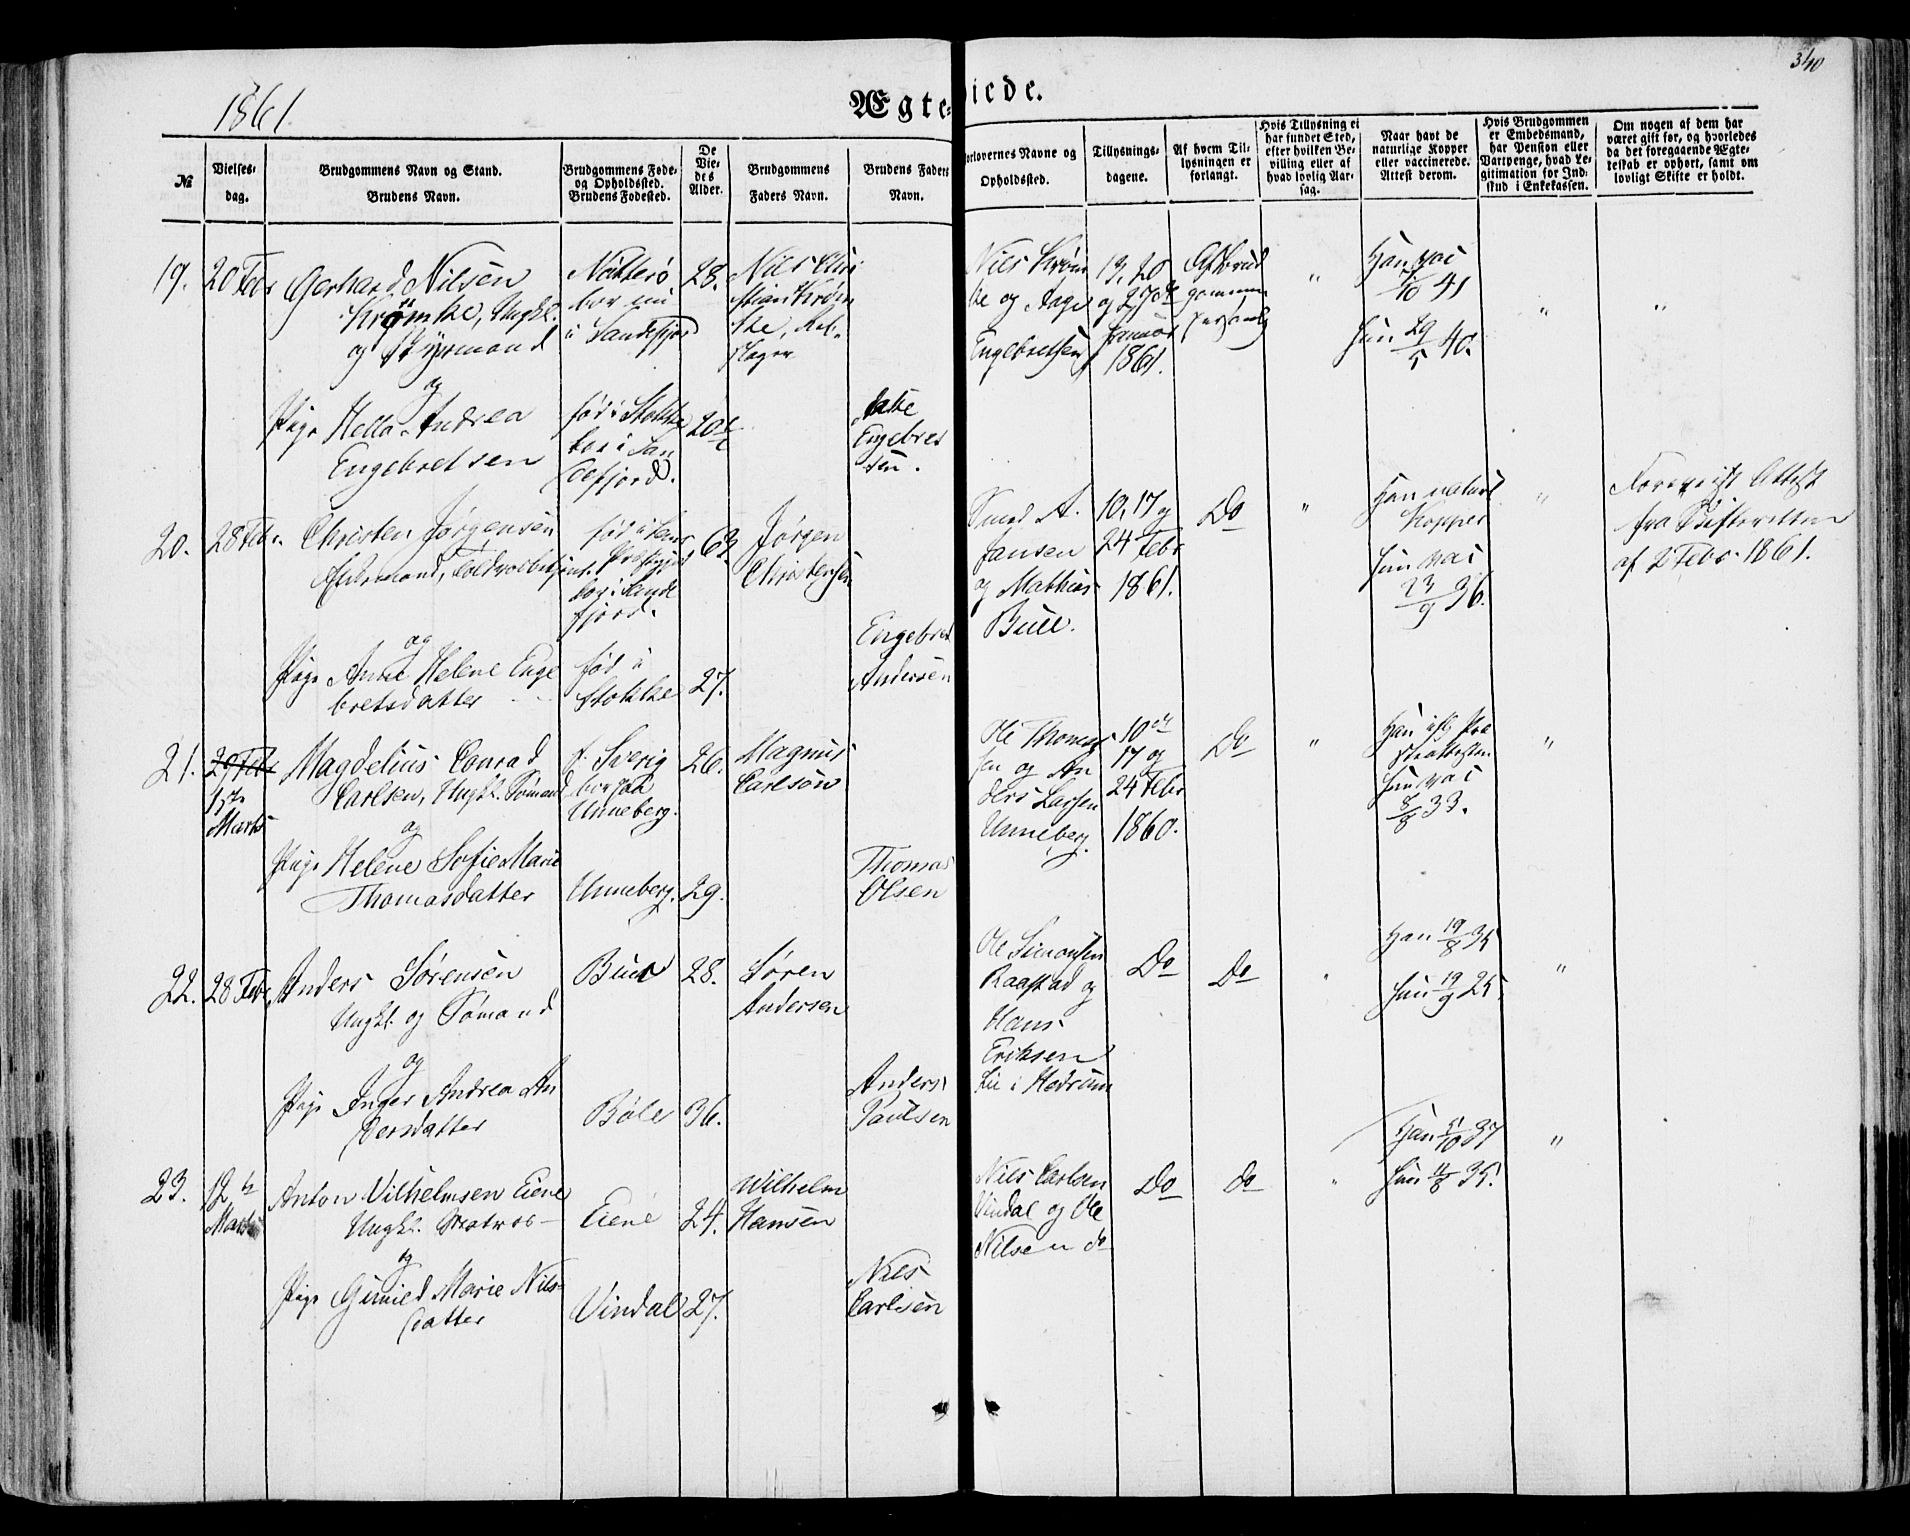 340
1861.
Ægteviede.
№
Vielses-
dag.
Brudgommens Navn og Stand.
Brudens Navn.
Brudgommens Føde-
og Opholdssted.
Brudens Fødested.
De
Vie-
des
Alder.
Brudgommens
Faders Navn.
Brudens Faders
Navn.
Forlovernes Navne og
Opholdssted.
Tillysnings-
dagene.
Af hvem Til-
lysningen er
forlangt.
Hvis Tillysning ei
har fundet Sted,
efter hvilken Be-
villing eller af
hvad lovlig Aar-
sag.
Naar havt de
naturlige Kopper
eller vaccinerede.
Attest derom.
Hvis Brudgommen
er Embedsmand,
har Pension eller
Vartpenge, hvad Le-
gitimation for Ind-
skud i Enkekassen.
Om nogen af dem har
været gift før, og hvorledes
da det foregaaende Ægte-
skab er ophørt, samt om
lovligt Skifte er holdt.
19.
20 Febr
Gerhard Nilsen
Krømke, Ungk.
og Styrmand
og
Pige Hella Andrea
Engebretsen
Nøtterø
bor nu
i Sandefjord
født i Stokke
bor i San
defjord.
28.
20½
Nils Chri
stian Krøm
ke, Reb-
slager
Engebret
sen.
Nils Krøm
ke og Aage
Engebretsen
13, 20
og 27de
Januar
1861.
Af Brud
gommen
personlig
"
Han vac
41
Hun 29/5 40.
"
"
20.
28 Febr.
Christen Jørgensen
og
Pige Anne Helene Enge
bretsdatter
bor i Sande
fjord.
fød i
Stokke
63
27.
Jørgen
Christensen
Engebret
Andersen
Knud A.
Jansen
og Mathias
Bull.
10, 17 og
24 Febr
1861.
Do
"
Han naturl
Kopper
Hun vac
23/9 36.
"
Foreviist Attest
fra Skifteretten
af 2 Febr. 1861.
21.
1ste
Marts
Magdelius Conrad
Carlsen, Ungk. Sømand
og
Pige Helene Sofie Marie
Thomasdatter
f. Sverig
bor paa
Unneberg.
Unneberg.
26.
29.
Magnus
Carlsøn
Thomas
Olsen
Ole Thomas
sen og An
ders Larsen
Unneberg.
10de
17 og
24 Febr
1860.
Do
"
Hun vac
8/8 33.
"
22.
28 Febr.
Anders Sørensen
Ungk. og Sømand
og
Pige Inger Andrea An
dersdatter
Bøle
28.
36.
Søren
Andersen
Anders
Paulsen
Ole Simonsen
Raastad og
Hans
Eriksen
Lie i Hedrum
Do
Do
"
Han 19/8 35
Hun 19/9 25
"
23.
12te
Marts
Anton Vilhelmsen Eiene
Ungk. Matros
og
Pige Gunild Marie Nils-
datter
Eiene
Vindal
24.
27.
Wilhelm
Hansen
Nils
Carlsen
Nils Carlsen
Vindal og Ole
Nilsen do
Do
do
"
Han 5/10 37
Hun 35.
"